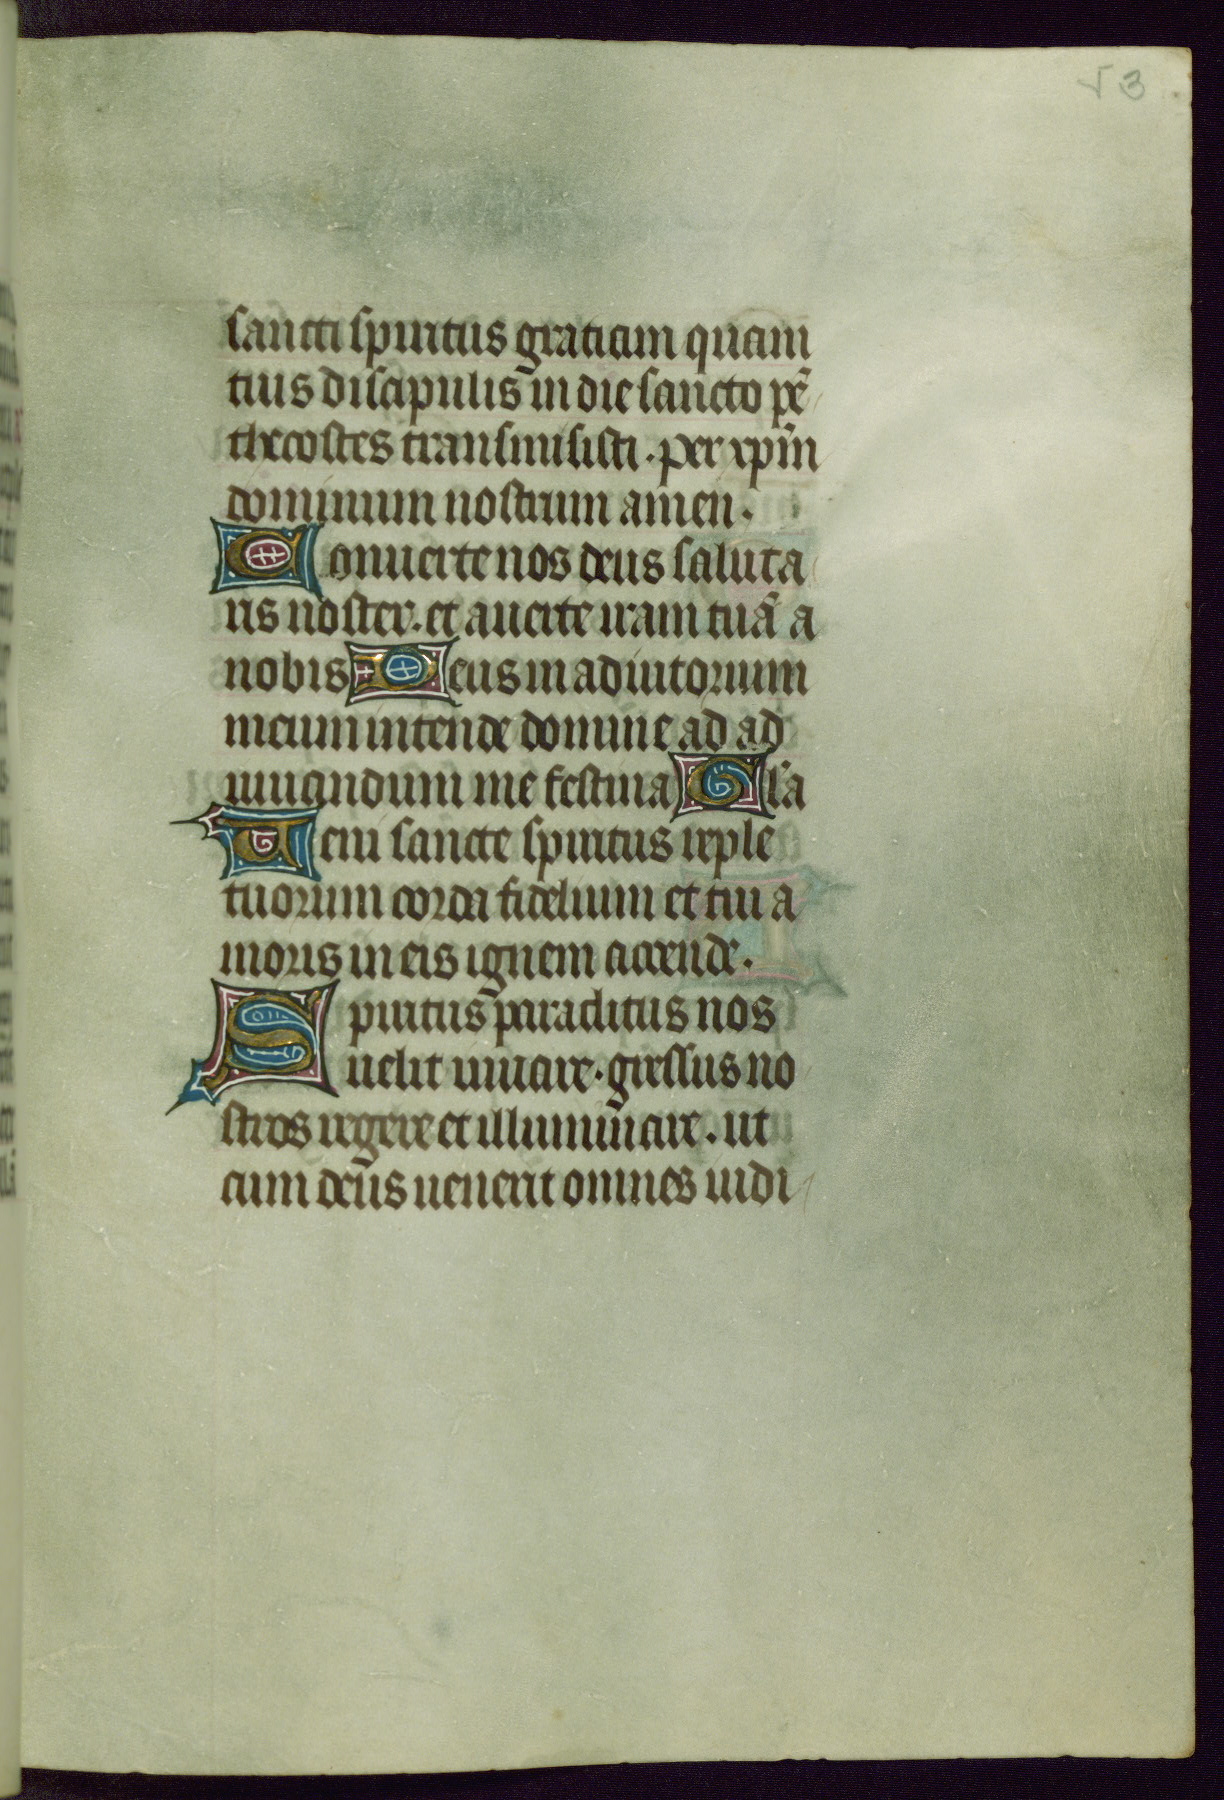 53
sancti spiritus gratiam quam
tuis discipulis in die sancto pē
thecostes transmisisti. per xp̄m
dominum nostrum amen.
Conuerte nos deus saluta
ris noster. et auerte iram tuā a
nobis Deus in adiutorium
meum intende domine ad ad
iuuandum me festina Gl'a
Veni sancte spiritus reple
tuorum corda fidelium et tui a
moris in eis ignem accende.
Spiritus paraclitus nos
uelit iuuare. gressus no
stros regere et illuminare. ut
cum deus uenerit omnes iudi